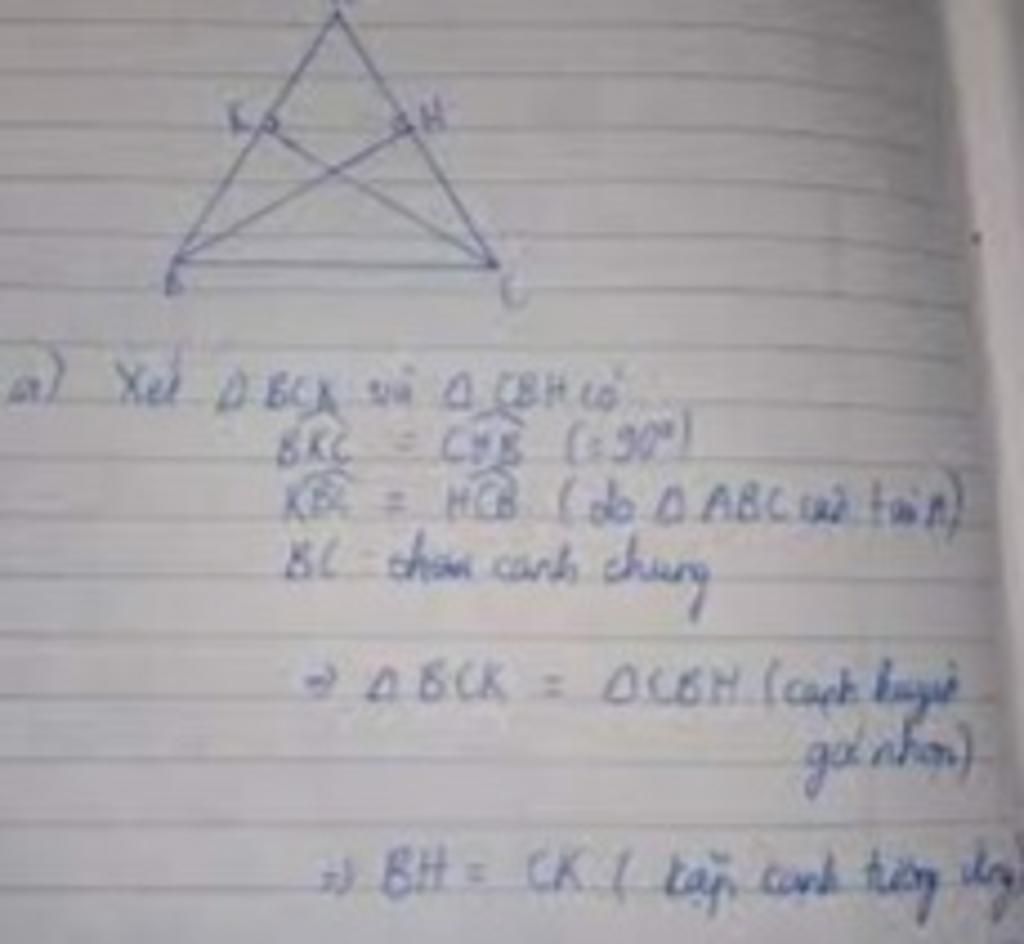 K H
B C
a) Xét Δ BCK và Δ CBH có
BKC = CHB (=90°)
KBC = HCB (do Δ ABC cân tại A)
BC cạnh chung
=> Δ BCK = Δ CBH (cạnh huyền
góc nhọn)
=> BH = CK ( cặp cạnh tương ứng)